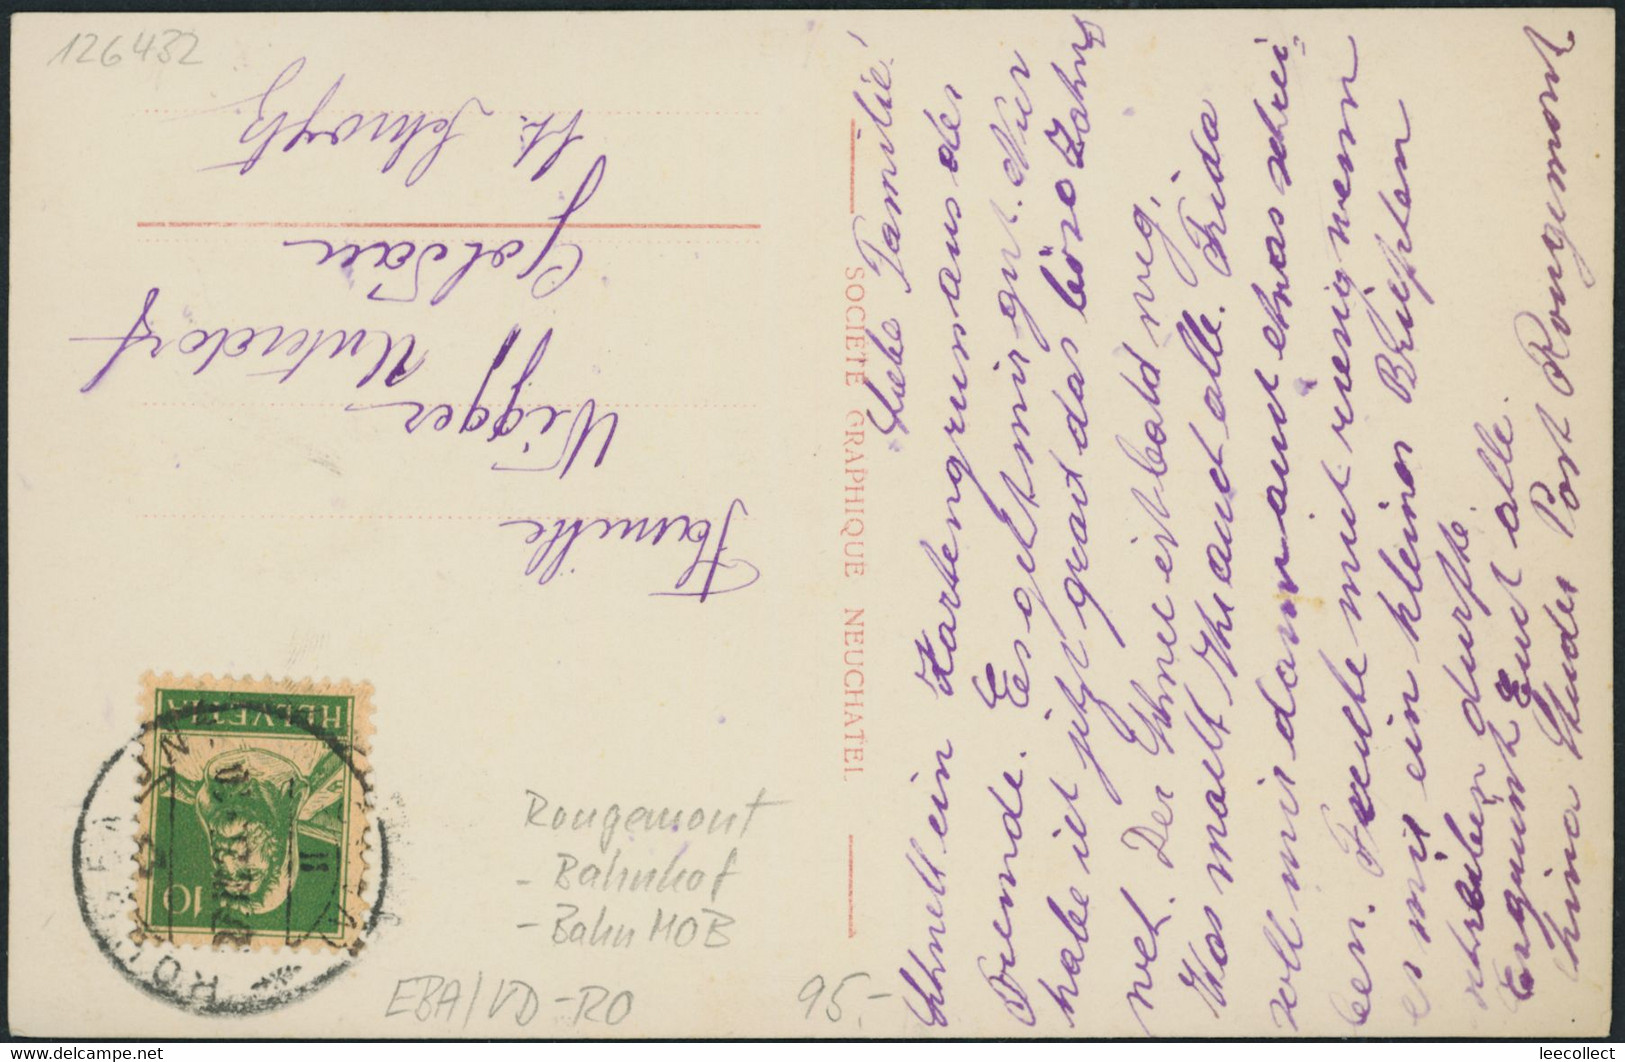 126432
Familie
Wigger
Unterdorf
Goldau
Kt. Schwytz
HELVETIA
10
ROUGEMONT
SOCIÉTÉ GRAPHIQUE NEUCHATEL
Liebe Familie!
Schnell ein Kartengruss aus der
Fremde. Es geht mir gut. Nur
habe ich jetzt grad das böse Zahn
weh. Der Schnee ist bald weg.
Was macht Ihr auch alle. Frida
soll mir dann auch etwas schrei=
ben. Freute mich riesig wenn
es mir ein kleines Brieflein
schreiben durfte.
Es grüsst Euch alle.
Post Rougemont
Rougemont
- Bahnhof
- Bahn MOB
EBA/VD-RO
95.-
leecollect